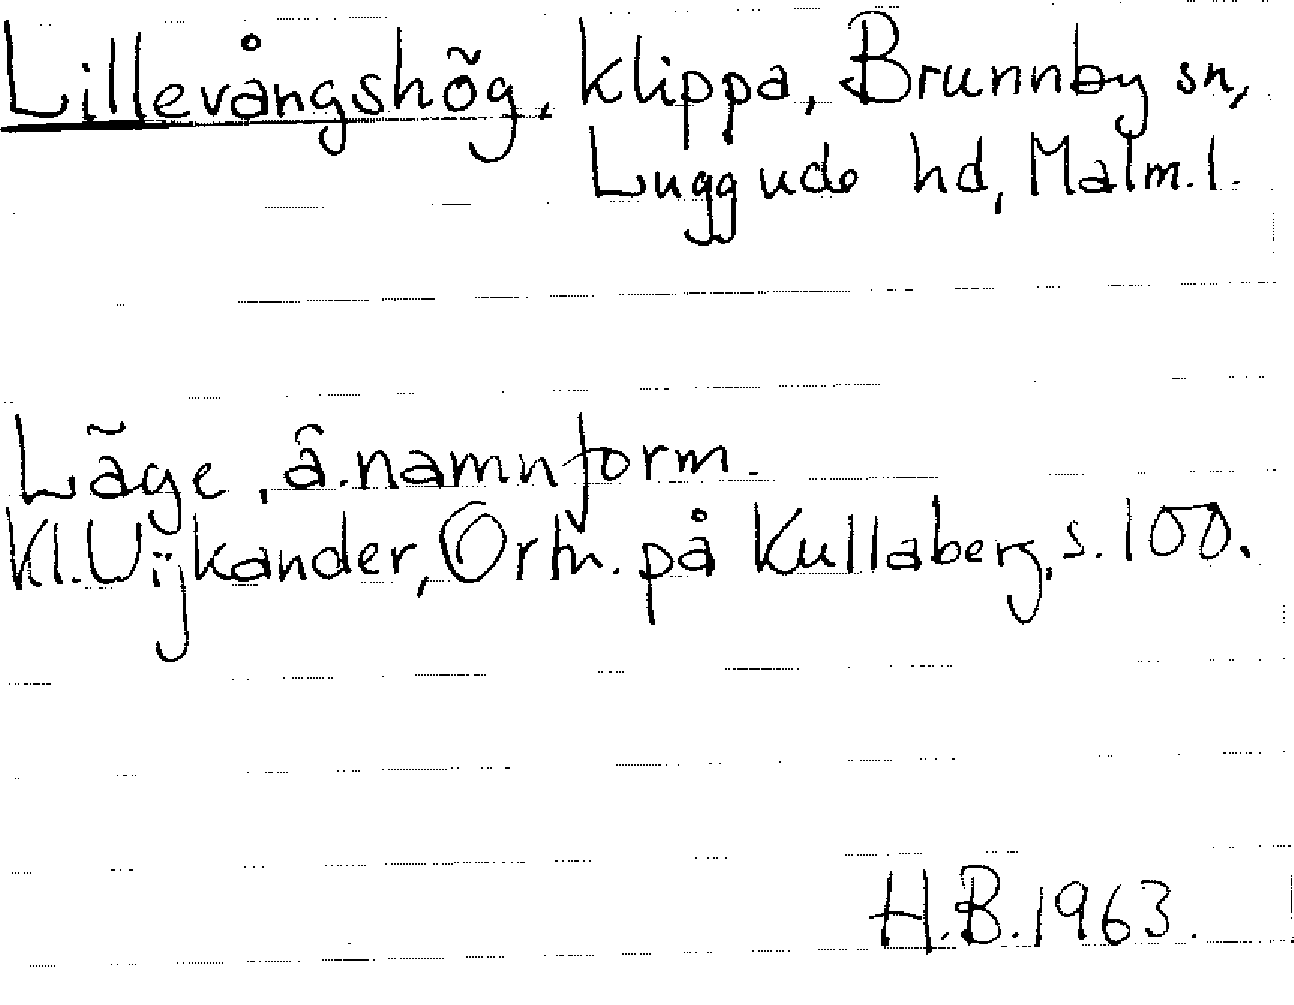 Lillevångshög, klippa, Brunnby sn,
Luggude hd, Malm.l.
Läge, ä.namnform.
Kl.Uijkander, Ortn. på Kullaberg, s. 100.
H.B.1963.